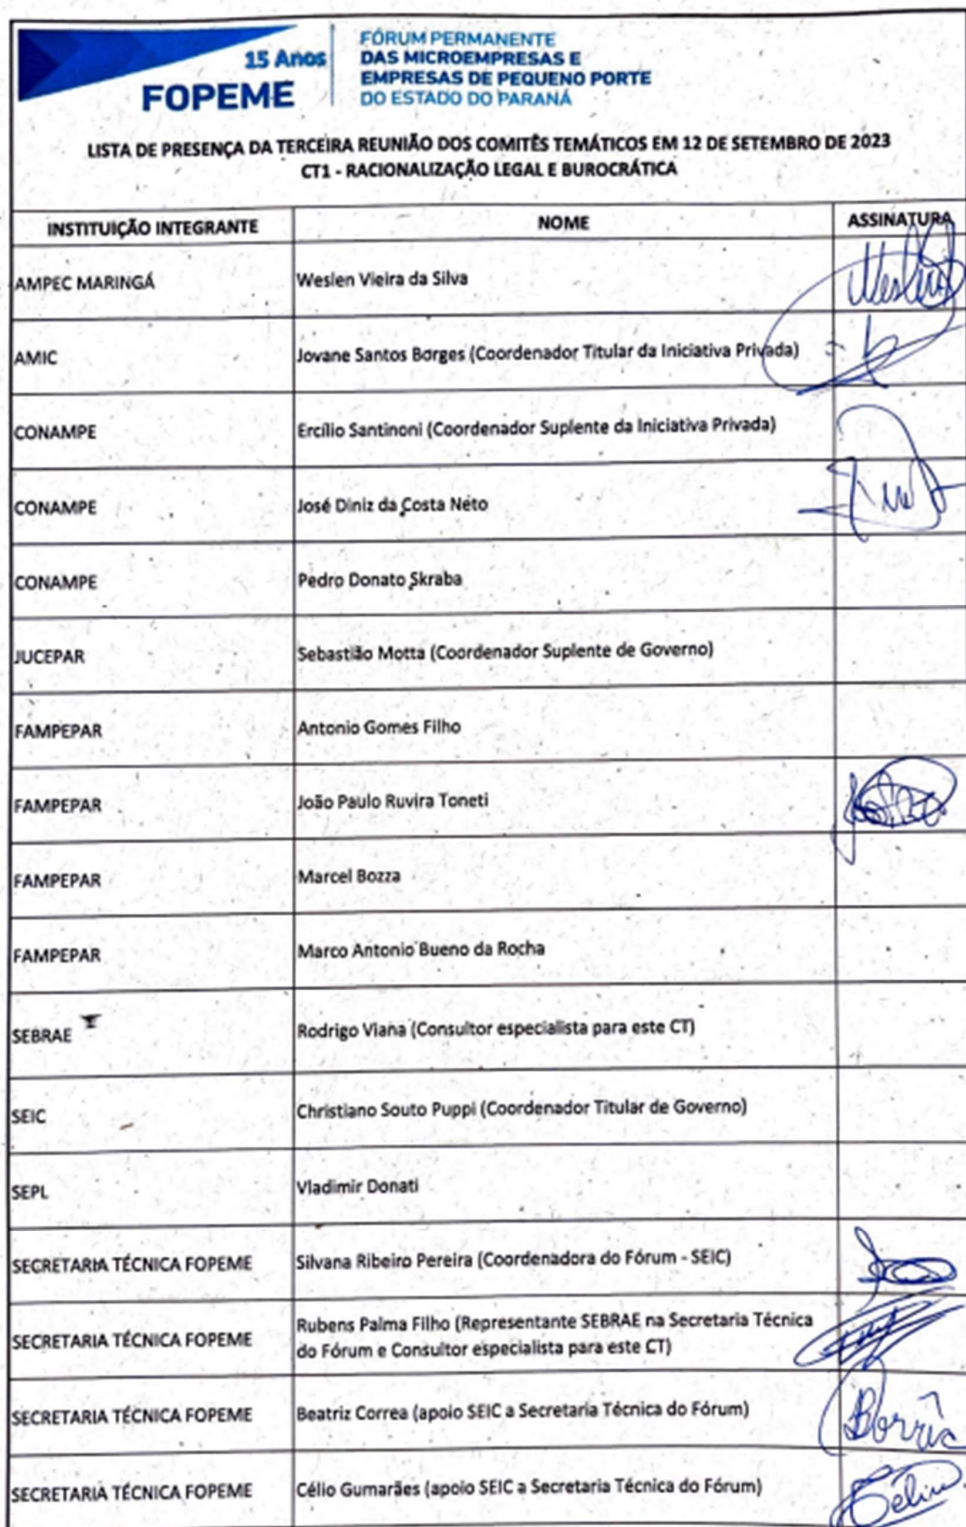 15 Anos
FOPEME
FÓRUM PERMANENTE
DAS MICROEMPRESAS E
EMPRESAS DE PEQUENO PORTE
DO ESTADO DO PARANÁ
LISTA DE PRESENÇA DA TERCEIRA REUNIÃO DOS COMITÊS TEMÁTICOS EM 12 DE SETEMBRO DE 2023
CT1 - RACIONALIZAÇÃO LEGAL E BUROCRÁTICA
INSTITUIÇÃO INTEGRANTE NOME ASSINATURA
AMPEC MARINGÁ Weslen Vieira da Silva
AMIC Jovane Santos Borges (Coordenador Titular da Iniciativa Privada)
CONAMPE Ercílio Santinoni (Coordenador Suplente da Iniciativa Privada)
CONAMPE José Diniz da Costa Neto
CONAMPE Pedro Donato Skraba
JUCEPAR Sebastião Motta (Coordenador Suplente de Governo)
FAMPEPAR Antonio Gomes Filho
FAMPEPAR João Paulo Ruvira Toneti
FAMPEPAR Marcel Bozza
FAMPEPAR Marco Antonio Bueno da Rocha
SEBRAE Rodrigo Viana (Consultor especialista para este CT)
SEIC Christiano Souto Puppi (Coordenador Titular de Governo)
SEPL Vladimir Donati
SECRETARIA TÉCNICA FOPEME Silvana Ribeiro Pereira (Coordenadora do Fórum - SEIC)
SECRETARIA TÉCNICA FOPEME Rubens Palma Filho (Representante SEBRAE na Secretaria Técnica
do Fórum e Consultor especialista para este CT)
SECRETARIA TÉCNICA FOPEME Beatriz Correa (apoio SEIC a Secretaria Técnica do Fórum)
SECRETARIA TÉCNICA FOPEME Célio Gumarães (apoio SEIC a Secretaria Técnica do Fórum)